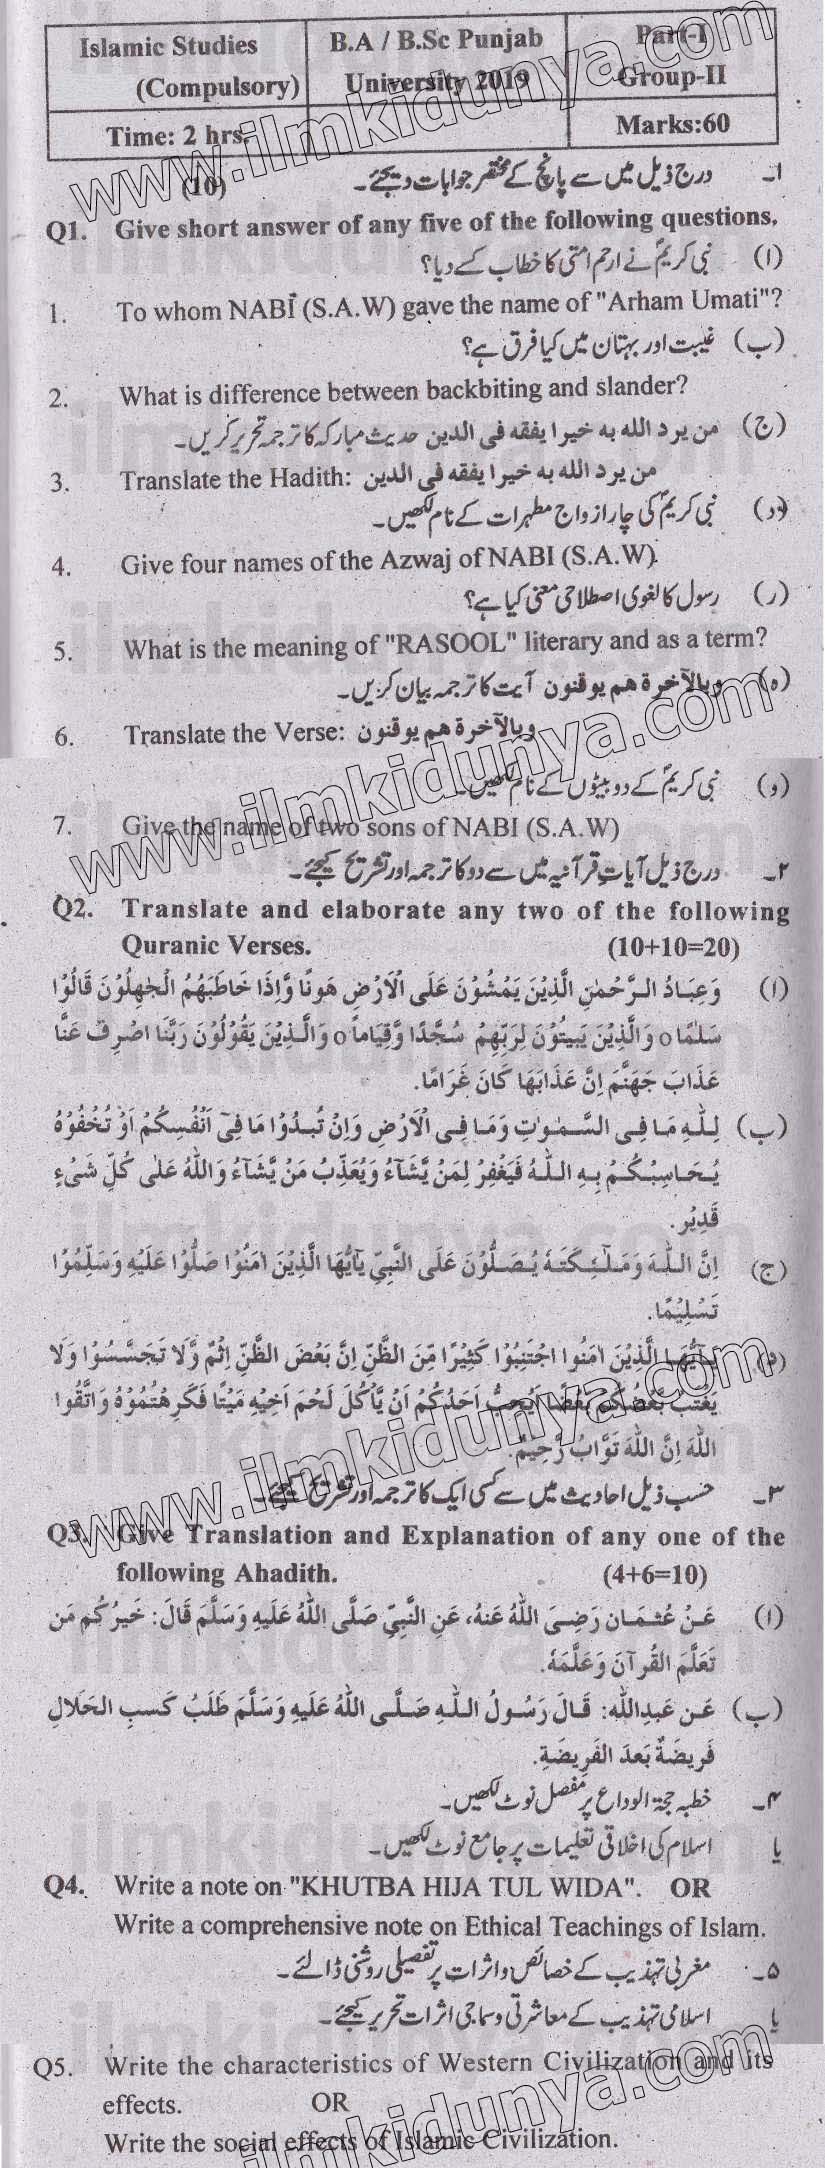 Islamic Studies
(Compulsory)
B.A / B.Sc Punjab
University 2019
Part-I
Group-II
Time: 2 hrs.
Marks:60
۱۔ درج ذیل میں سے پانچ کے مختصر جوابات دیجئے۔ (10)
Q1. Give short answer of any five of the following questions.
(ا) نبی کریمؐ نے ارحم امتی کا خطاب کسے دیا؟
1. To whom NABI (S.A.W) gave the name of "Arham Umati"?
(ب) غیبت اور بہتان میں کیا فرق ہے؟
2. What is difference between backbiting and slander?
(ج) من یرد اللہ بہ خیرا یفقہ فی الدین حدیث مبارکہ کا ترجمہ تحریر کریں۔
3. Translate the Hadith: من یرد اللہ بہ خیرا یفقہ فی الدین
(د) نبی کریمؐ کی چار ازواج مطہرات کے نام لکھیں۔
4. Give four names of the Azwaj of NABI (S.A.W).
(ر) رسول کا لغوی اصطلاحی معنی کیا ہے؟
5. What is the meaning of "RASOOL" literary and as a term?
(ہ) وبالآخرۃ ھم یوقنون آیت کا ترجمہ بیان کریں۔
6. Translate the Verse: وبالآخرۃ ھم یوقنون
(و) نبی کریمؐ کے دو بیٹوں کے نام لکھیں۔
7. Give the name of two sons of NABI (S.A.W)
۲۔ درج ذیل آیات قرآنیہ میں سے دو کا ترجمہ اور تشریح کیجئے۔
Q2. Translate and elaborate any two of the following
Quranic Verses. (10+10=20)
(ا) وَعِبَادُ الرَّحْمٰنِ الَّذِيْنَ يَمْشُوْنَ عَلَى الْاَرْضِ هَوْنًا وَّاِذَا خَاطَبَهُمُ الْجٰهِلُوْنَ قَالُوْا
سَلٰمًا o وَالَّذِيْنَ يَبِيْتُوْنَ لِرَبِّهِمْ سُجَّدًا وَّقِيَاماً o وَالَّذِيْنَ يَقُوْلُوْنَ رَبَّنَا اصْرِفْ عَنَّا
عَذَابَ جَهَنَّمَ اِنَّ عَذَابَهَا كَانَ غَرَامًا.
(ب) لِلّٰهِ مَا فِى السَّمٰوٰتِ وَمَا فِى الْاَرْضِ وَاِنْ تُبْدُوْا مَا فِىْٓ اَنْفُسِكُمْ اَوْ تُخْفُوْهُ
يُحَاسِبْكُمْ بِهِ اللّٰهُ فَيَغْفِرُ لِمَنْ يَّشَآءُ وَيُعَذِّبُ مَنْ يَّشَآءُ وَاللّٰهُ عَلٰى كُلِّ شَىْءٍ
قَدِيْر.
(ج) اِنَّ اللّٰهَ وَمَلٰٓئِكَتَهٗ يُصَلُّوْنَ عَلَى النَّبِيِّ يٰٓاَيُّهَا الَّذِيْنَ اٰمَنُوْا صَلُّوْا عَلَيْهِ وَسَلِّمُوْا
تَسْلِيْمًا.
(د) يٰٓاَيُّهَا الَّذِيْنَ اٰمَنُوا اجْتَنِبُوْا كَثِيْرًا مِّنَ الظَّنِّ اِنَّ بَعْضَ الظَّنِّ اِثْمٌ وَّلَا تَجَسَّسُوْا وَلَا
يَغْتَبْ بَّعْضُكُمْ بَعْضًا اَيُحِبُّ اَحَدُكُمْ اَنْ يَّاْكُلَ لَحْمَ اَخِيْهِ مَيْتًا فَكَرِهْتُمُوْهُ وَاتَّقُوا
اللّٰهَ اِنَّ اللّٰهَ تَوَّابٌ رَّحِيْمٌ.
۳۔ حسب ذیل احادیث میں سے کسی ایک کا ترجمہ اور تشریح کیجئے۔
Q3. Give Translation and Explanation of any one of the
following Ahadith. (4+6=10)
(ا) عَنْ عُثمَان رَضِىَ اللّٰهُ عَنهُ، عَنِ النَّبِيِّ صَلَّى اللّٰهُ عَلَيهِ وَسَلَّمَ قَالَ: خَيرُ كُم مَن
تَعَلَّمَ القُرآنَ وَعَلَّمَهٗ.
(ب) عَن عَبدِاللّٰه: قَالَ رَسُولُ اللّٰهِ صَلَّى اللّٰهُ عَلَيهِ وَسَلَّمَ طَلَبُ كَسبِ الحَلَالِ
فَرِيضَةٌ بَعدَ الفَرِيضَةِ.
۴۔ خطبہ حجۃ الوداع پر مفصل نوٹ لکھیں۔
یا اسلام کی اخلاقی تعلیمات پر جامع نوٹ لکھیں۔
Q4. Write a note on "KHUTBA HIJA TUL WIDA". OR
Write a comprehensive note on Ethical Teachings of Islam.
۵۔ مغربی تہذیب کے خصائص و اثرات پر تفصیلی روشنی ڈالئے۔
یا اسلامی تہذیب کے معاشرتی و سماجی اثرات تحریر کیجئے۔
Q5. Write the characteristics of Western Civilization and its
effects. OR
Write the social effects of Islamic Civilization.
www.ilmkidunya.com
www.ilmkidunya.com
www.ilmkidunya.com
www.ilmkidunya.com